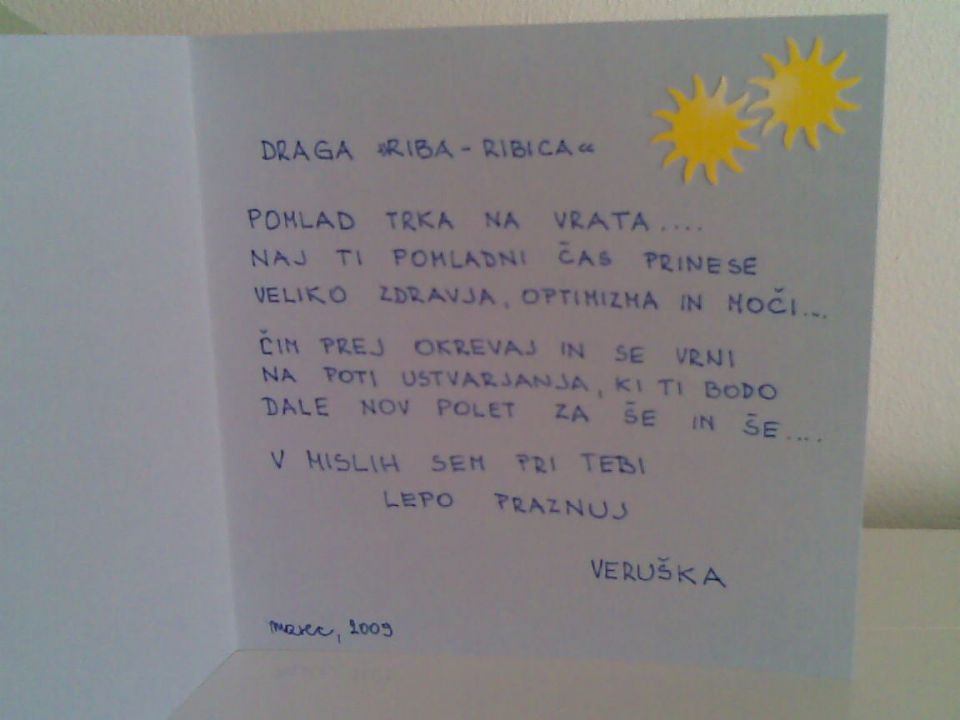 DRAGA »RIBA - RIBICA«
POMLAD TRKA NA VRATA....
NAJ TI POMLADNI ČAS PRINESE
VELIKO ZDRAVJA, OPTIMIZMA IN MOČI...
ČIM PREJ OKREVAJ IN SE VRNI
NA POTI USTVARJANJA, KI TI BODO
DALE NOV POLET ZA ŠE IN ŠE....
V MISLIH SEM PRI TEBI
LEPO PRAZNUJ
VERUŠKA
marec, 2009